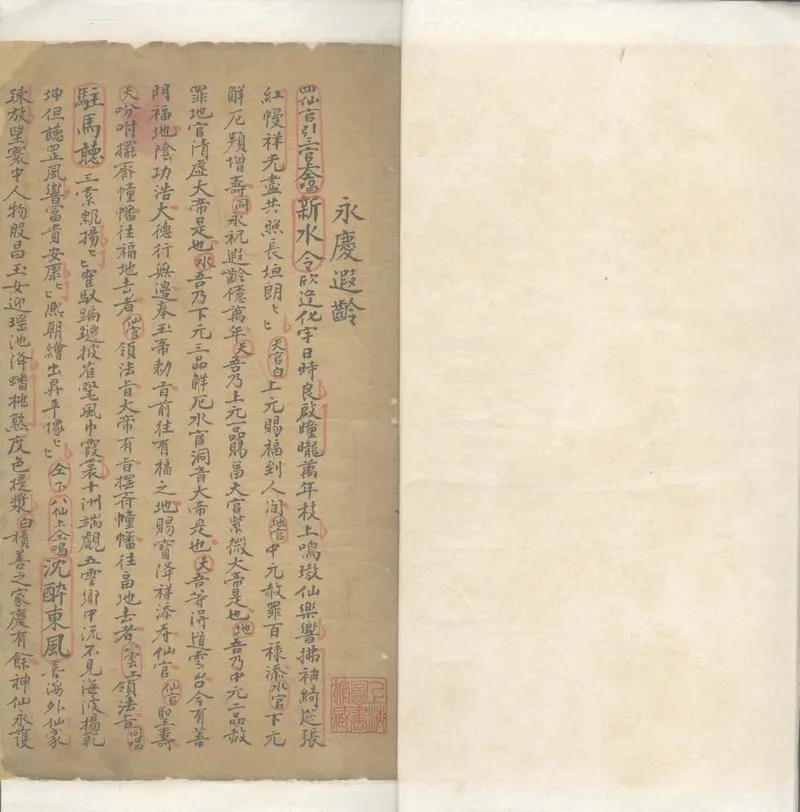 永慶遐齡
四仙官引三官仝唱新水令欣逢化宇日時良啟曈曨萬年枝上鳴璈仙樂響拂袖綺筵張
紅幔祥光盡共照長垣朗〻〻天官白上元賜福到人間地官中元赦罪百祿添水官下元
解厄頻增壽同永祝遐齡億萬年天吾乃上元一品賜畐天官紫微大帝是也地吾乃中元二品赦
罪地官清虛大帝是也水吾乃下元三品解厄水官洞音大帝是也天吾等得道雲台今有善
門福地陰功浩大德行無邊奉玉帝勅旨前往有福之地賜寶降祥添壽仙官仙官聖壽
天吩咐擺齊幢幡往福地去者仙官領法旨大帝有旨擺齊幢幡往畐地去者雲上領法旨同唱
駐馬聽三素飄揚〻〻鶴馭蹁蹮披雀氅風巾霞裳十洲端覷五雲鄉中流不見海波揚乾
坤但聽罡風響富貴安康〻〻熙朝繪出昇平像〻〻仝下八仙上仝唱沈醉東風喜海外仙家
疎放塱寰中人物殷昌玉女迎瑤池降蟠桃熟度色提漿白積善之家慶有餘神仙永護